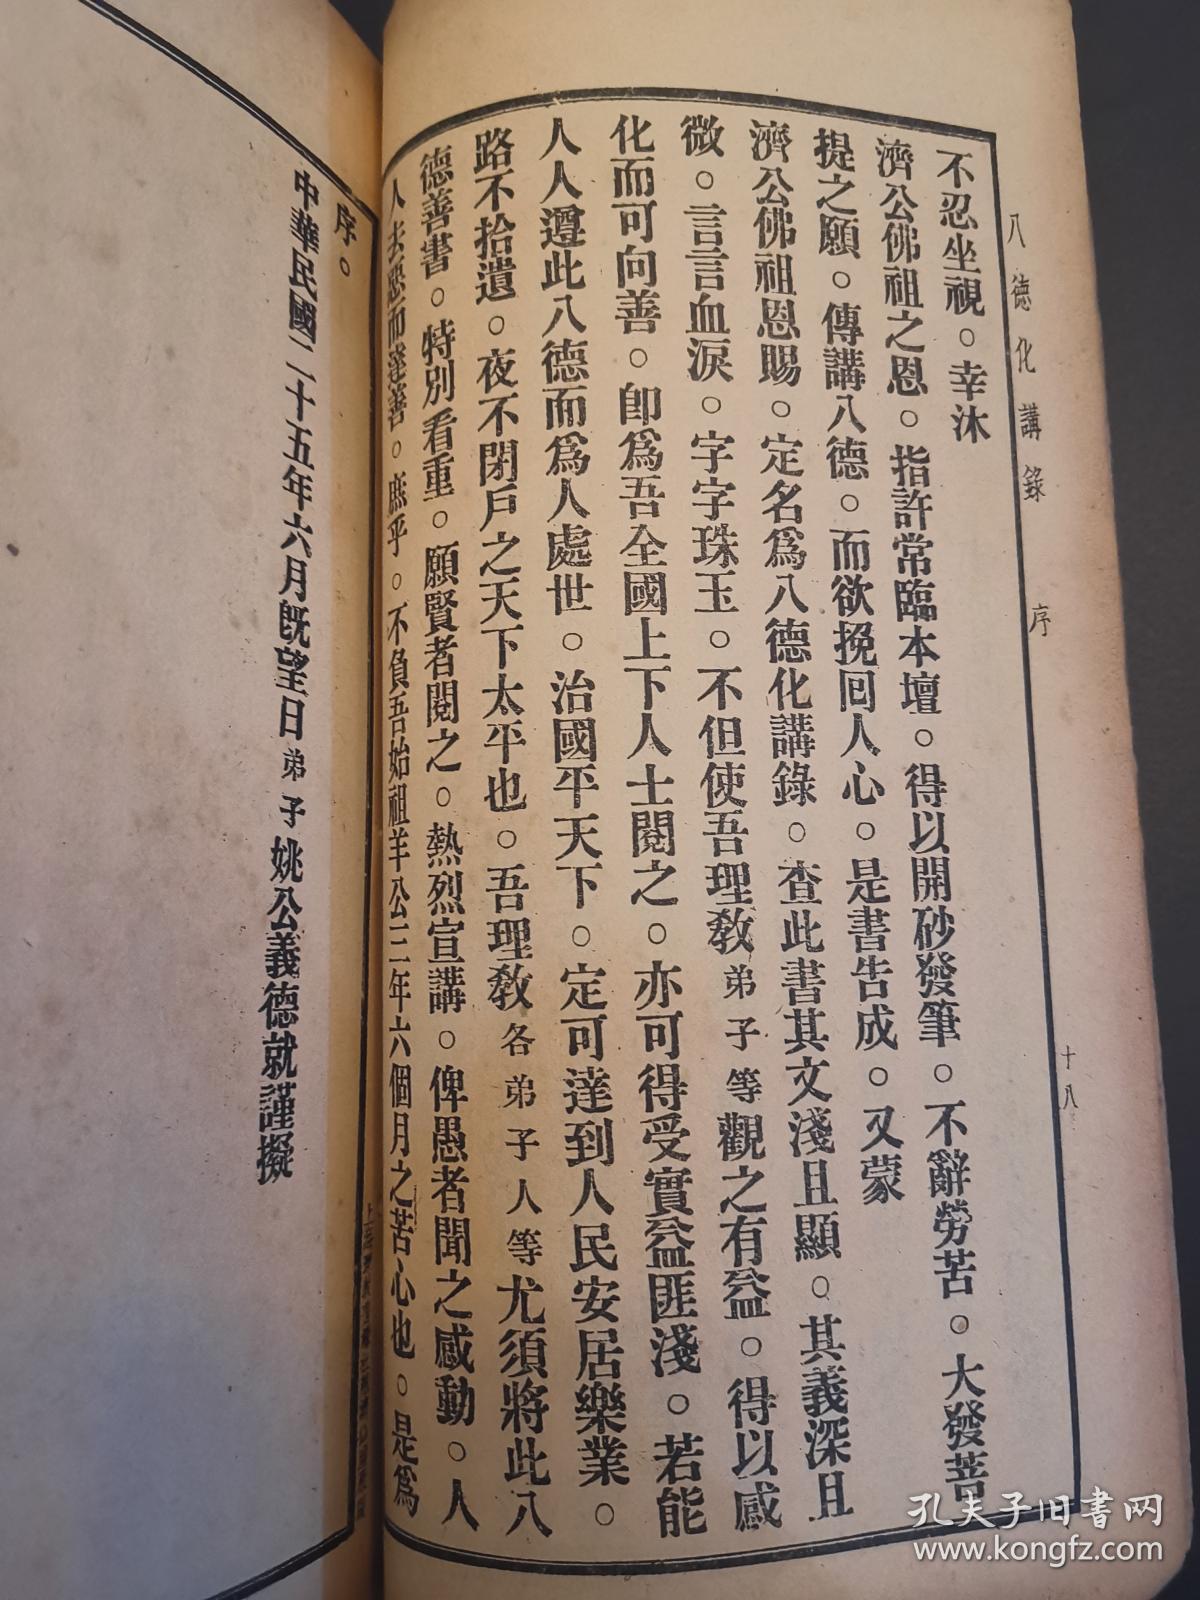 八德化講錄　序　十八
不忍坐視。幸沐
濟公佛祖之恩。指許常臨本壇。得以開砂發筆。不辭勞苦。大發菩
提之願。傳講八德。而欲挽回人心。是書告成。又蒙
濟公佛祖恩賜。定名爲八德化講錄。查此書其文淺且顯。其義深且
微。言言血淚。字字珠玉。不但使吾理敎弟子等觀之有益。得以感
化而可向善。卽爲吾全國上下人士閱之。亦可得受實益匪淺。若能
人人遵此八德而爲人處世。治國平天下。定可達到人民安居樂業。
路不拾遺。夜不閉戶之天下太平也。吾理敎各弟子人等尤須將此八
德善書。特別看重。願賢者閱之。熱烈宣講。俾愚者聞之感動。人
人去惡而達善。庶乎。不負吾始祖羊公三年六個月之苦心也。是爲
序。
中華民國二十五年六月旣望日弟子姚公義德就謹擬
孔夫子旧书网
www.kongfz.com